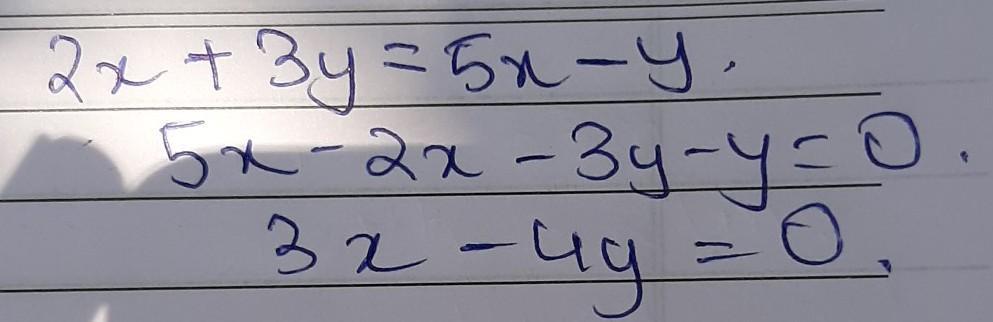 2x + 3y = 5x - y.
5x - 2x - 3y - y = 0.
3x - 4y = 0.